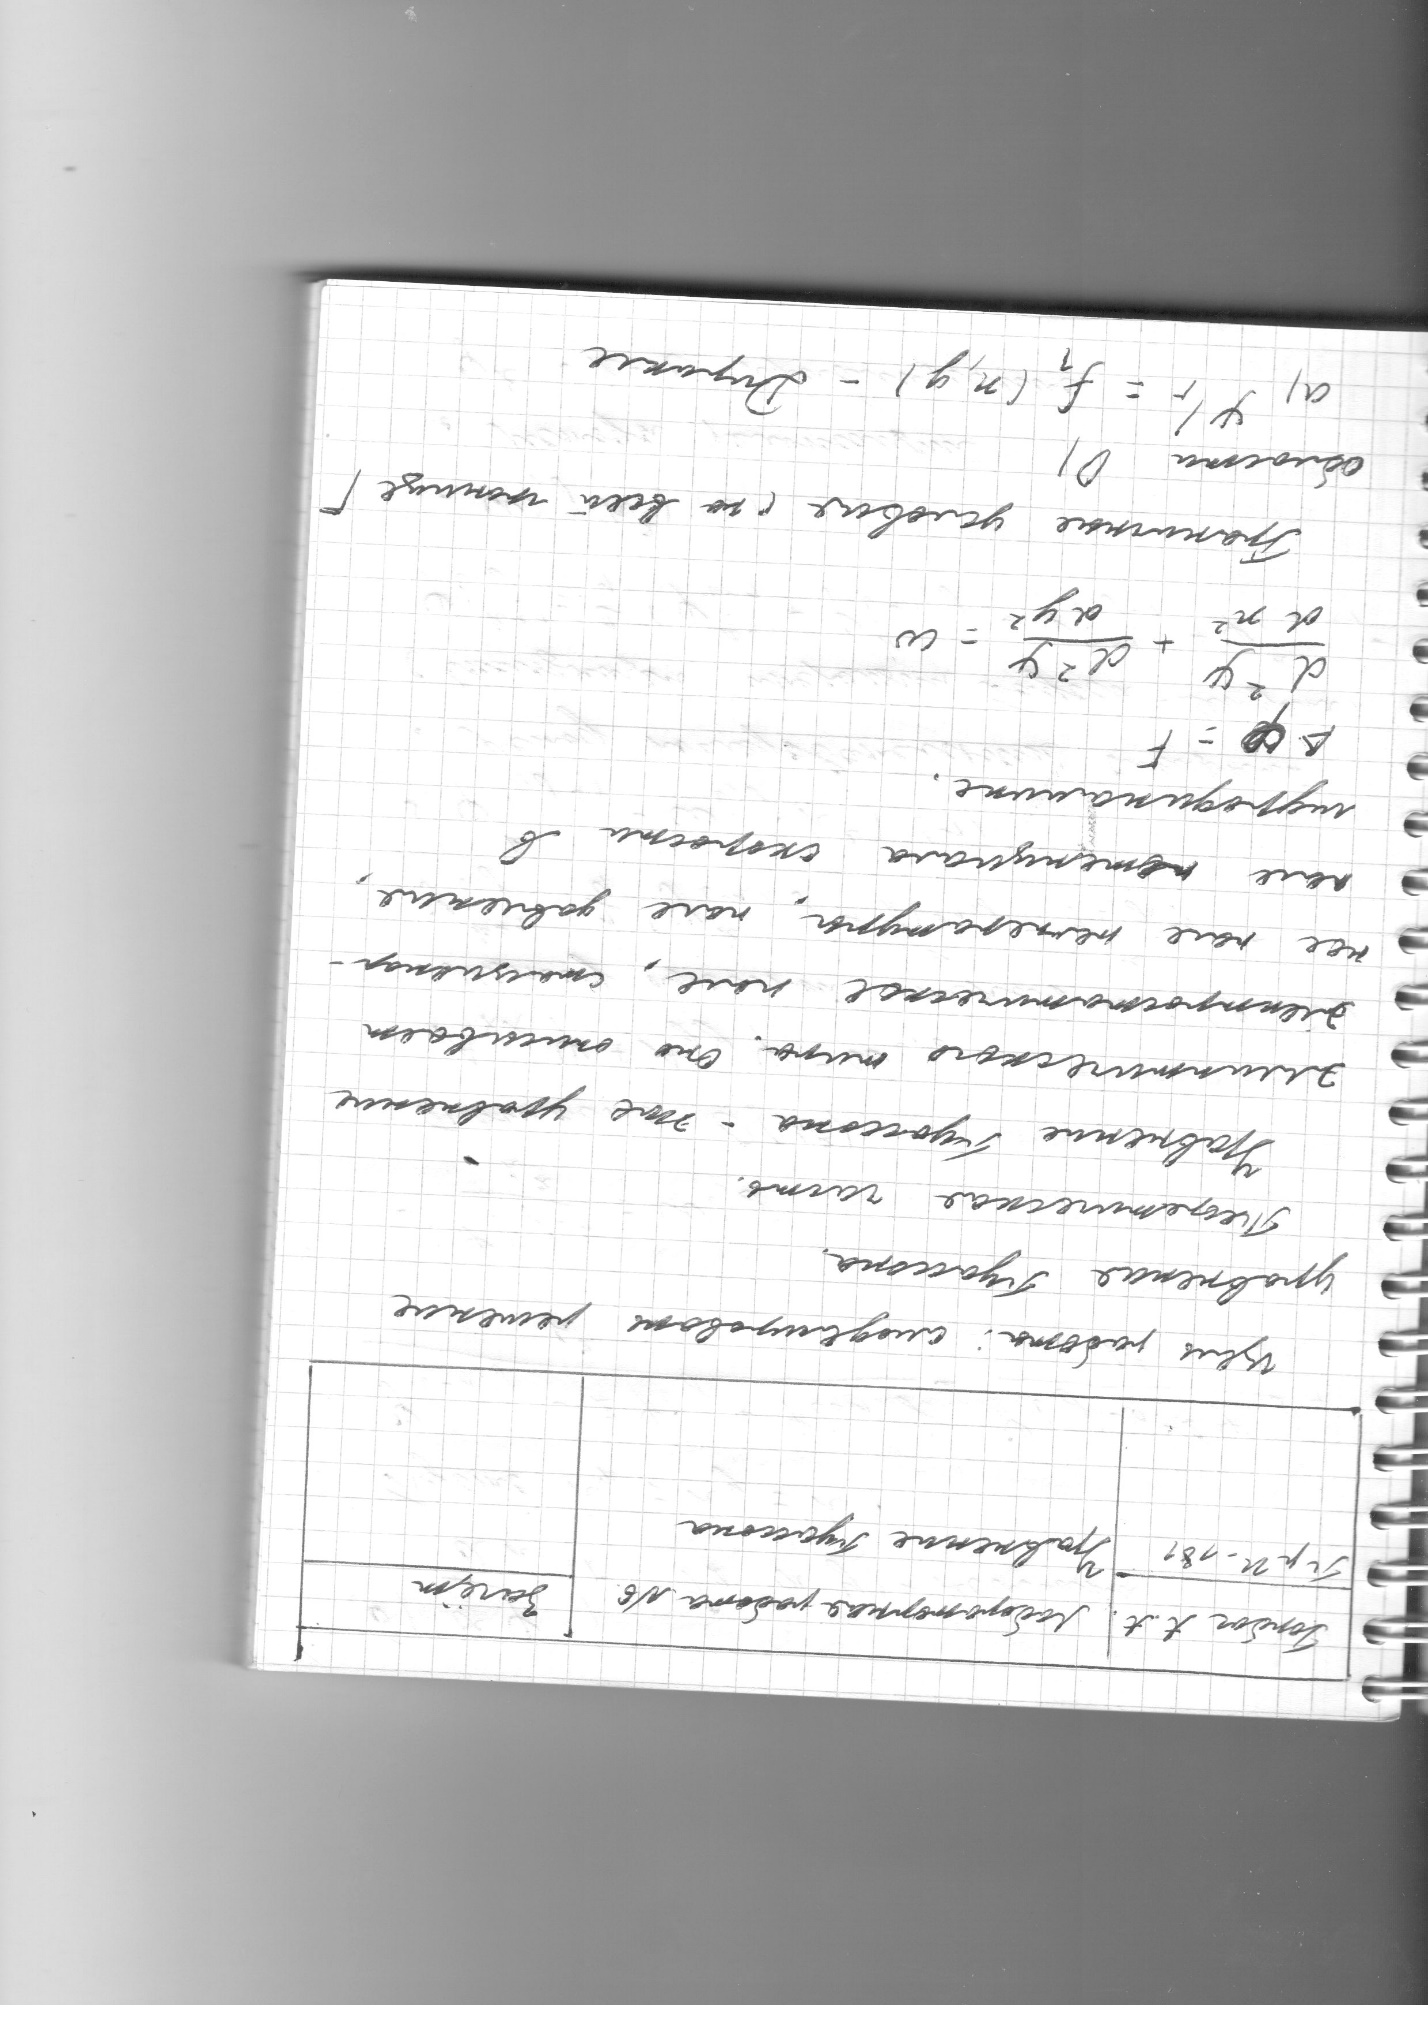 Лабораторная работа №6
Зачёт
Уравнение Пуассона
Цель работы: смоделировать решение
уравнения Пуассона.
Теоретическая часть.
Уравнение Пуассона - это уравнение
эллиптического типа. Оно описывает
электростатическое поле, стационар-
ное поле температуры, поле давления,
поле потенциала скорости в
гидродинамике.
Δφ = F
d²ψ/dx² + d²ψ/dy² = ω
Граничное условие (по всей границе Г
области D)
а) ψ|г = f₁(x,y) - Дирихле